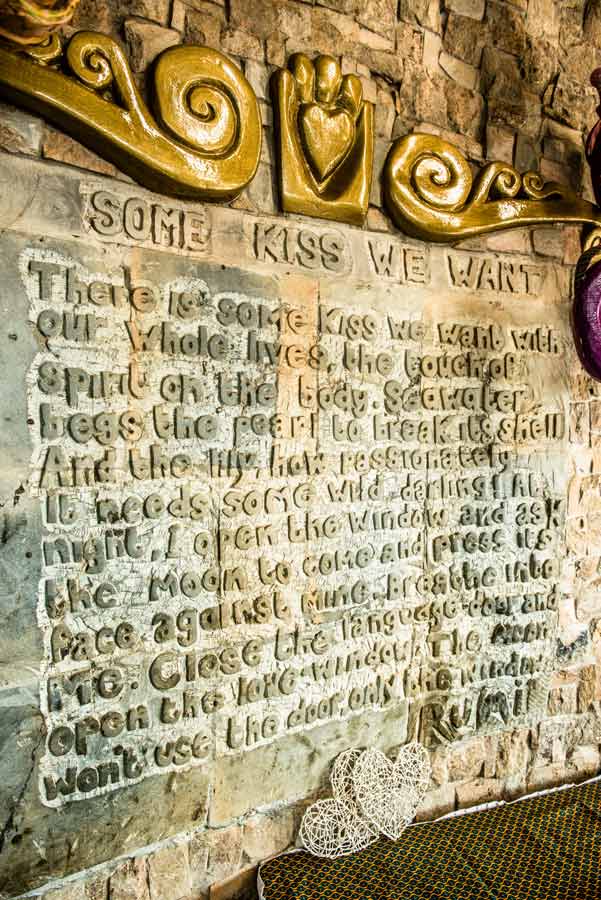 SOME KISS WE WANT
There is some Kiss we want with
our whole lives, the touch of
spirit on the body. Seawater
begs the pearl to break its shell
And the lily, how passionately
it needs some wild darling! At
night, I open the window and ask
the Moon to come and press its
face against mine. Breathe into
Me. Close the language-door and
open the love-window. The Moon
won't use the door, only the window
RUMI